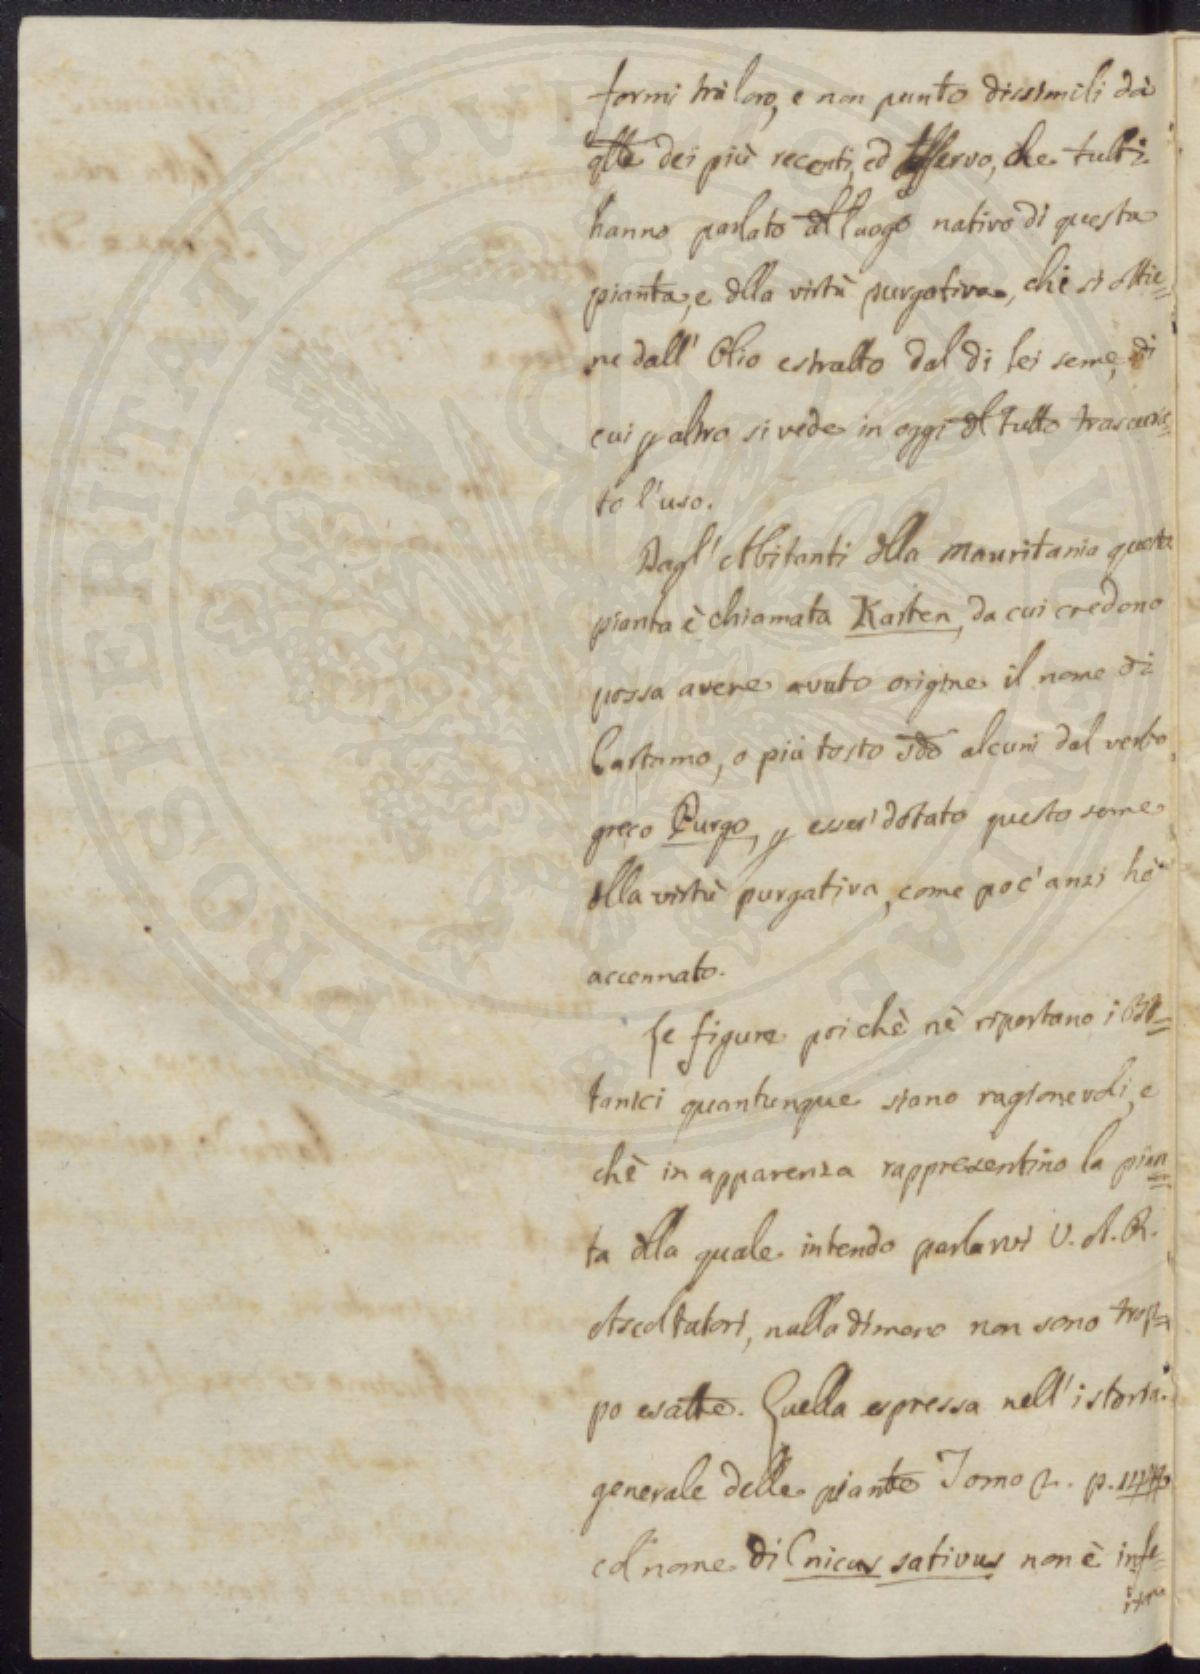 formi trà loro, e non punto dissimili dà
qlle dei più recenti, ed osservo, che tutti
hanno parlato dl luogo nativo di questa
pianta, e dlla virtù purgativa, chè si ottie=
ne dall' Olio estratto dal di lei seme, di
cui p altro si vede in oggi dl tutto trascura=
to l'uso.
Dagl' Abitanti dlla Mauritania questa
pianta è chiamata Karten, da cui credono
possa avere avuto origine il nome di
Cartamo, o più tosto sdo alcuni dal verbo
greco Purgo, p esser' dotato questo seme
dlla virtù purgativa, come poc' anzi hò
accennato.
Le figure poi chè nè riportano i Bo=
tanici quantunque siano ragionevoli, e
chè in apparenza rappresentino la pian=
ta dlla quale intendo parlarvi V. A. R.
Ascoltatori, nulladimeno non sono trop=
po esatte. Quella espressa nell' istoria
generale delle piante Tomo 2. p.
col nome di Cnicus sativus non è infe=
riore
PROSPERITATI PVBLICAE AVGENDAE